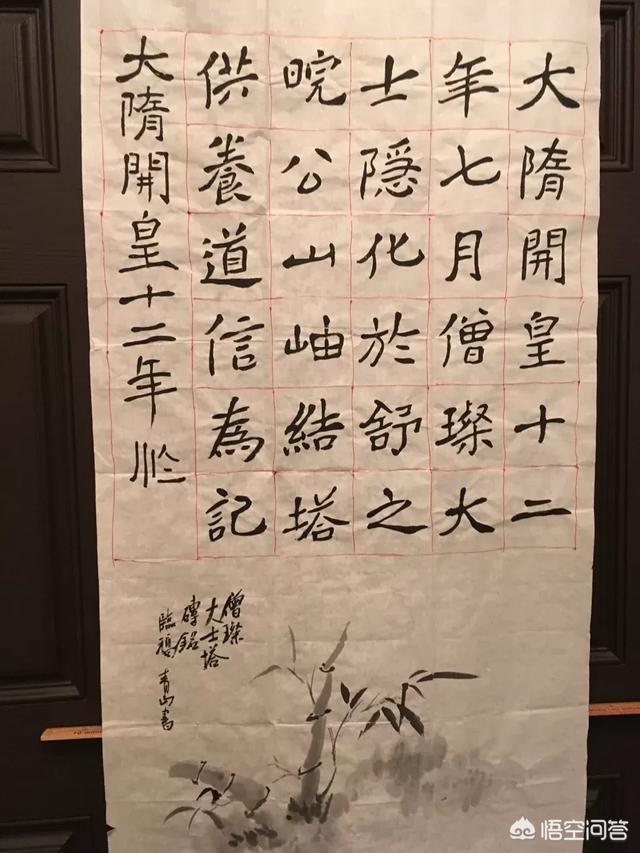 大隋開皇十二
年七月僧璨大
士隱化於舒之
晥公山岫結塔
供養道信為記
大隋開皇十二年
僧璨
大士塔
磚銘
臨 青山書
悟空问答